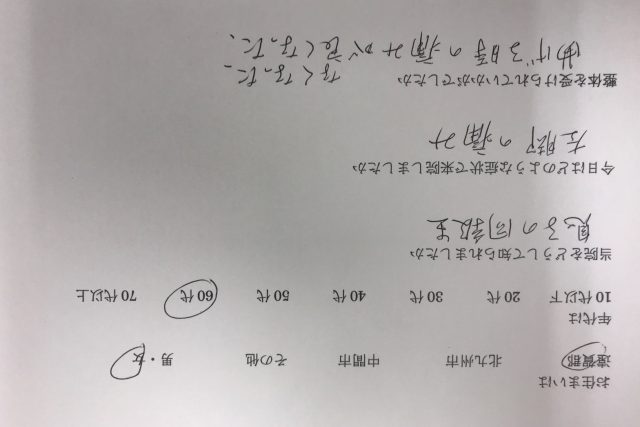 お住まいは
遠賀郡 北九州市 中間市 その他 男・女
年代は
10代以下 20代 30代 40代 50代 60代 70代以上
当院をどうして知られましたか
息子の同級生
今日はどのような症状で来院しましたか
左脚の痛み
整体を受けられていかがでしたか なくなった、
曲げる時の痛みが良くなった、